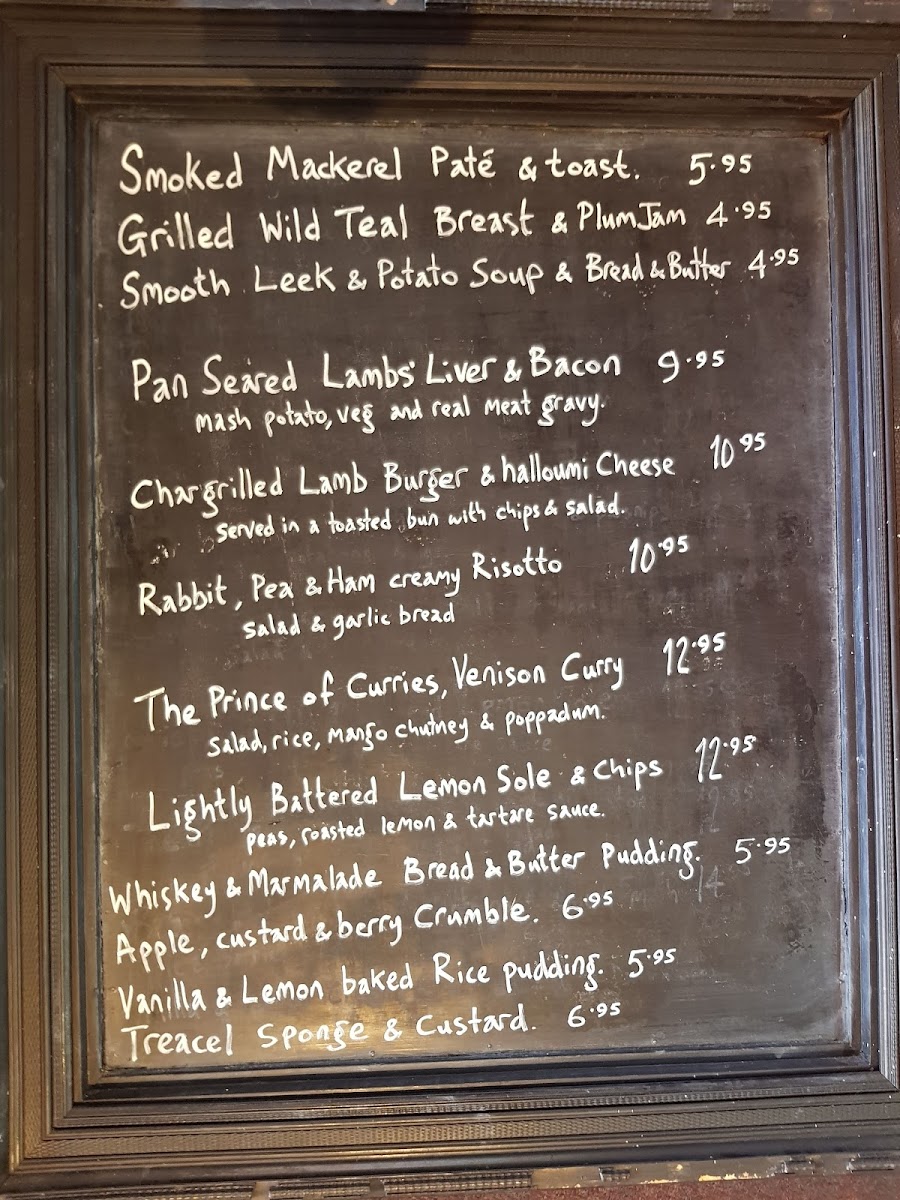 Smoked Mackerel Paté & toast. 5.95
Grilled Wild Teal Breast & Plum Jam 4.95
Smooth Leek & Potato Soup & Bread & Butter 4.95
Pan Seared Lambs' Liver & Bacon 9.95
mash potato, veg and real meat gravy.
Chargrilled Lamb Burger & halloumi Cheese 10.95
served in a toasted bun with chips & salad.
Rabbit, Pea & Ham creamy Risotto 10.95
salad & garlic bread
The Prince of Curries, Venison Curry 12.95
salad, rice, mango chutney & poppadum.
Lightly Battered Lemon Sole & Chips 12.95
peas, roasted lemon & tartare sauce.
Whiskey & Marmalade Bread & Butter Pudding. 5.95
Apple, custard & berry Crumble. 6.95
Vanilla & Lemon baked Rice pudding. 5.95
Treacel Sponge & Custard. 6.95